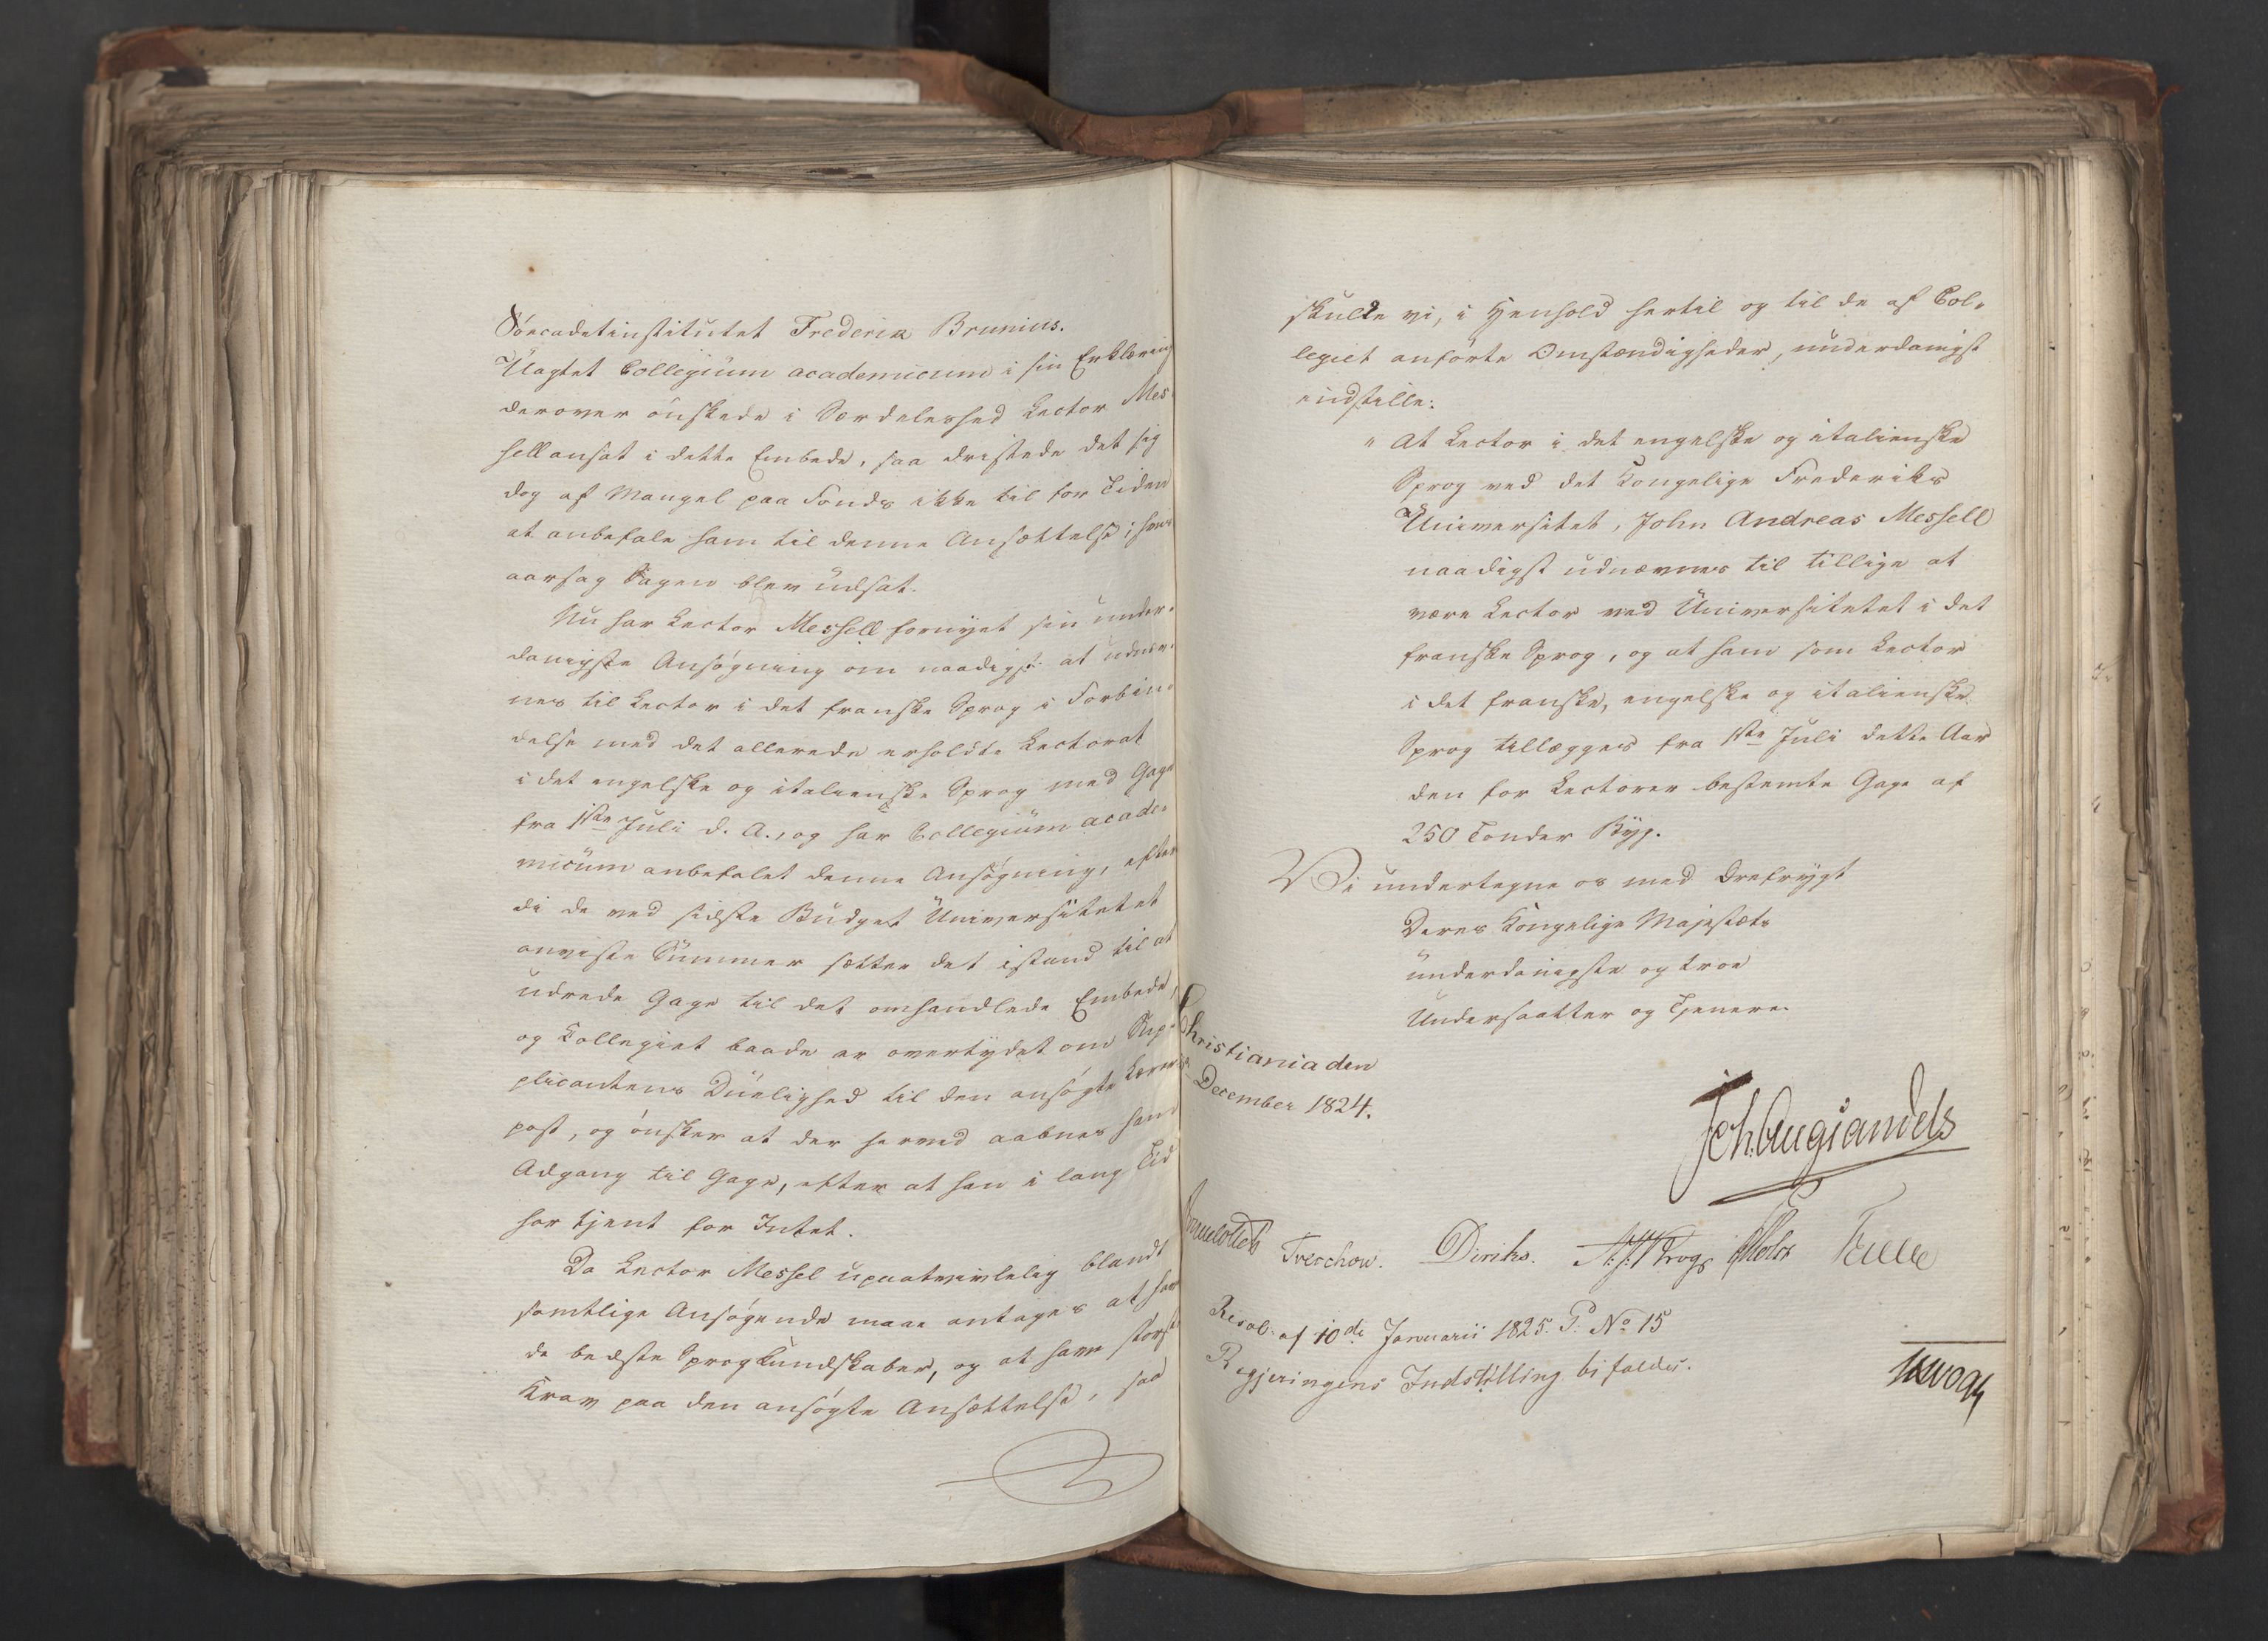 Söecadetinstitutet Frederik Brunius.
Uagtet Collegium academicum i sin Erklæring
derover ønskede i Særdeleshed Lector Mes-
sell ansat i dette Embede, saa dristede det sig
dog af Mangel paa Fonds ikke til for Tiden
at anbefale ham til denne Ansættelse; hvis
aarsag Sagen blev udsat.
Nu har Lector Messell fornyet sin under-
danigste Ansøgning om naadigst at udnæv-
nes til Lector i det franske Sprog i Forbin-
delse med det allerede erholdte Lectorat
i det engelske og italienske Sprog med Gage
fra 1ste Juli d. A., og har Collegium acade-
micum anbefalet denne Ansøgning, efter
di de ved sidste Budget Universitetet
anviste Summer sætter det istand til at
udrede Gage til det omhandlede Embede,
og Collegiet baade er overtydet om Sup-
plicantens Duelighed til den ansøgte Lærer
post, og ønsker at der herved aabnes ham
Adgang til Gage, efter at han i lang Tid
har tjent for Intet.
Da Lector Messel upaatvivlelig blandt
samtlige Ansøgende maae antages at have
de bedste Sprogkundskaber, og at have størst
Krav paa den ansøgte Ansættelse, saa
skulle vi, i Henhold hertil og til de af Col-
legiet anførte Omstændigheder, underdanigst
indstille:
" At Lector i det engelske og italienske
Sprog ved det Kongelige Frederiks
Universitet, John Andreas Messell
naadigst udnævnes til tillige at
være Lector ved Universitetet i det
franske Sprog, og at ham som Lector
i det franske, engelske og italienske
Sprog tillægges fra 1ste Juli dette Aar
den for Lectorer bestemte Gage af
250 Tønder Byg.
Vi undertegne os med Ærefrygt
Deres Kongelige Majestæts
underdanigste og troe
Undersaatter og Tjenere.
Christiania den
December 1824.
Joh. Aug Sandels
Sommelfeldt Treschow. Diriks. Krog Holst Fasting
Resol. af 10de Januarii 1825. P. No 15
Regjeringens Indstilling bifaldes.